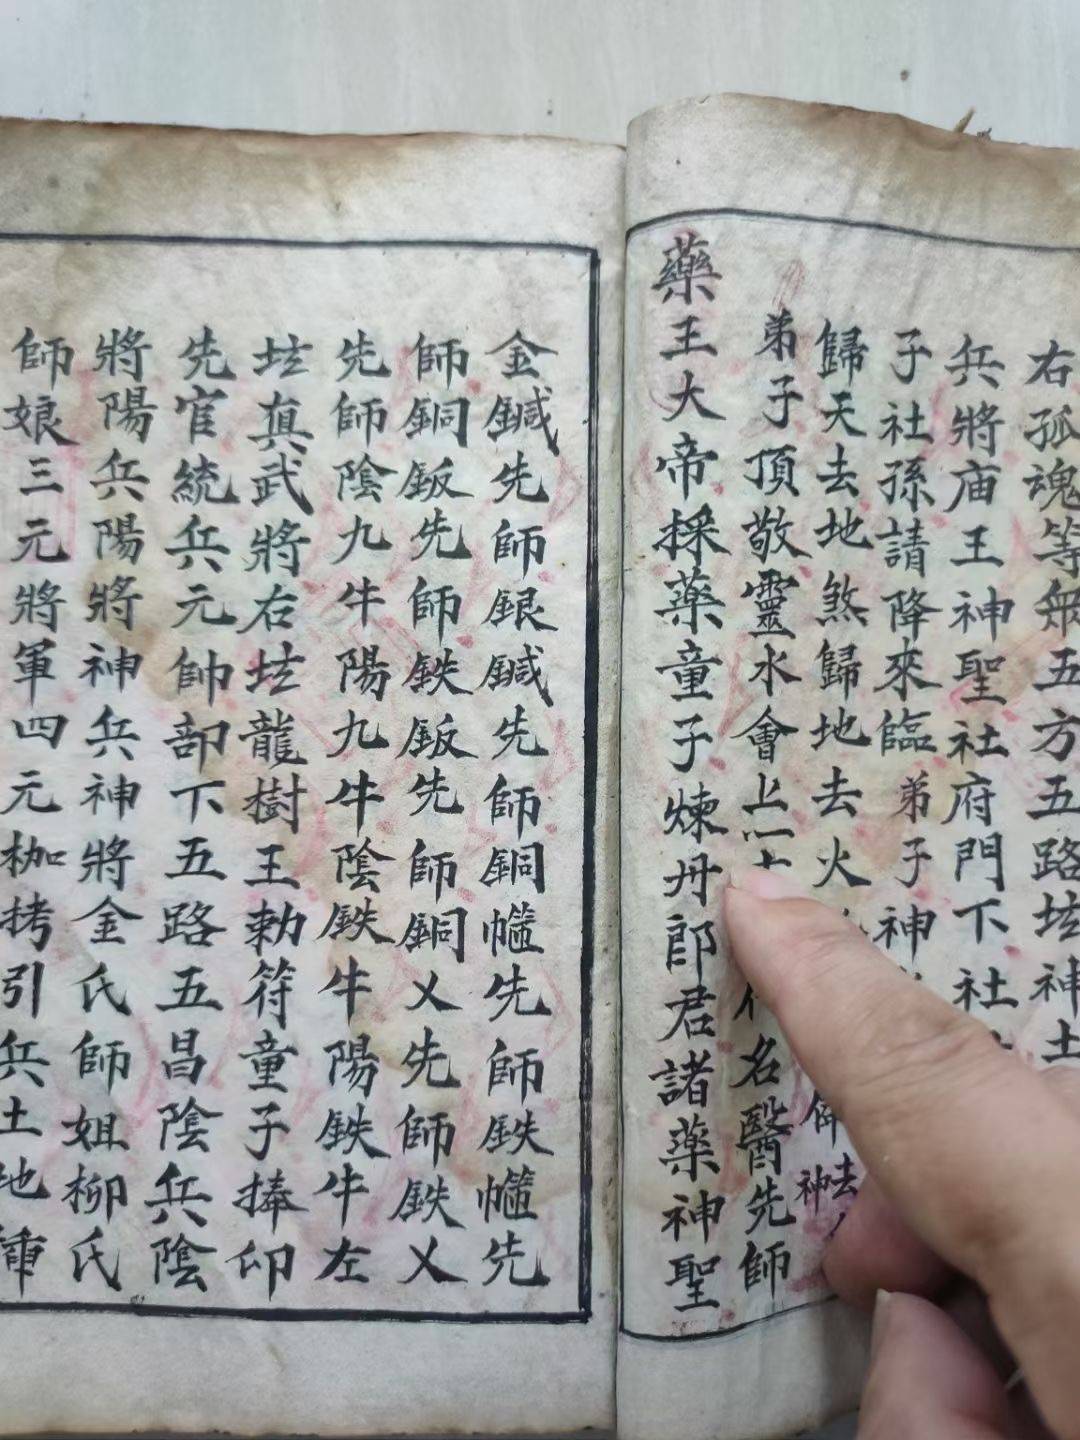 右孤魂等衆五方五路坛神土
兵將庙王神聖社府門下社
子社孫請降來臨 弟子神
歸天去地煞歸地去火 解去
神
弟子頂敬靈水會上 名醫先師
藥王大帝採藥童子煉丹郎君諸藥神聖
金鍼先師銀鍼先師銅幒先師鉄幒先
師銅鈑先師鉄鈑先師銅乂先師鉄乂
先師陰九牛陽九牛陰鉄牛陽鉄牛左
坛真武將右坛龍樹王勅符童子捧印
先官統兵元帥部下五路五昌陰兵陰
將陽兵陽將神兵神將金氏師姐柳氏
師娘三元將軍四元枷拷引兵土地